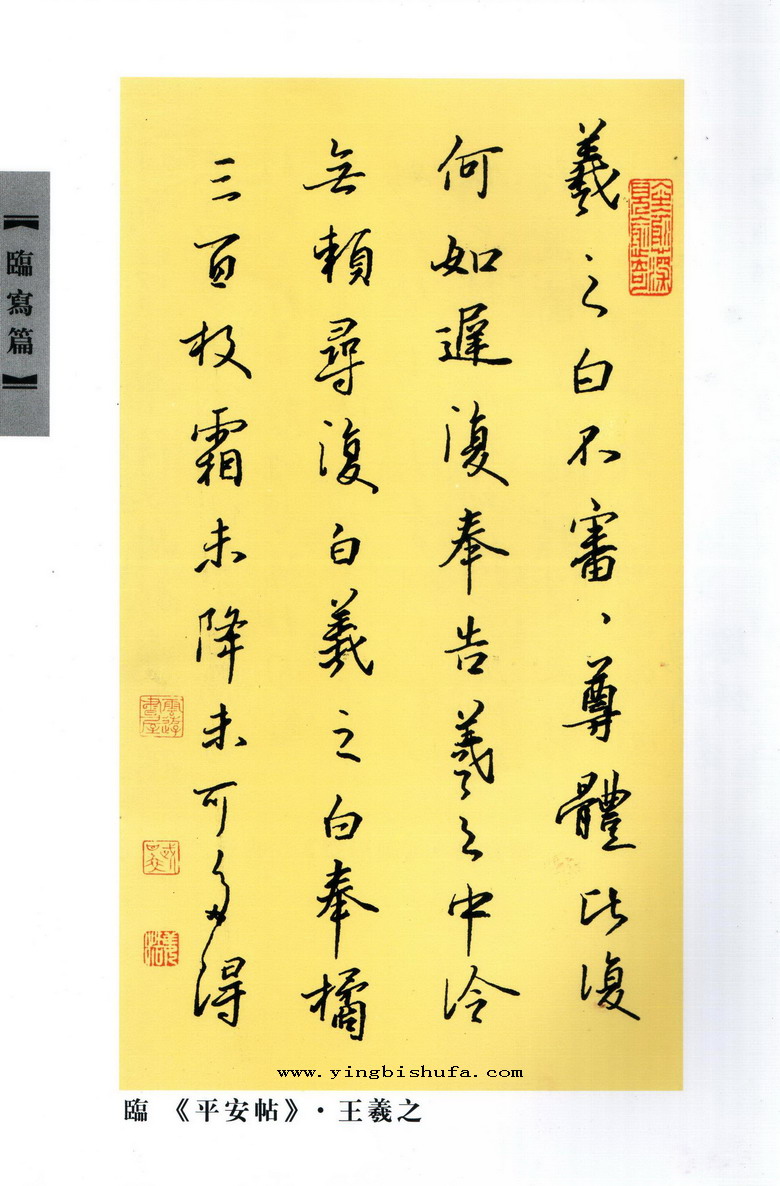 【臨寫篇】
羲之白不審、尊體比復
何如遲復奉告羲之中冷
無賴尋復白羲之白奉橘
三百枚霜未降未可多得
www.yingbishufa.com
臨《平安帖》·王羲之